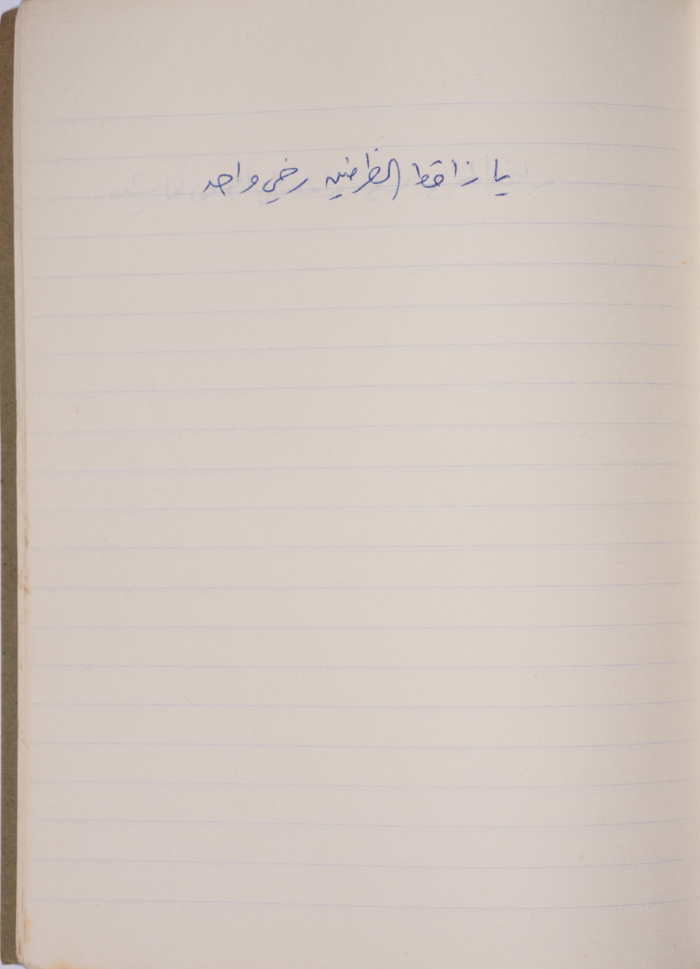 يا زاقط الطرافين رخي واحد